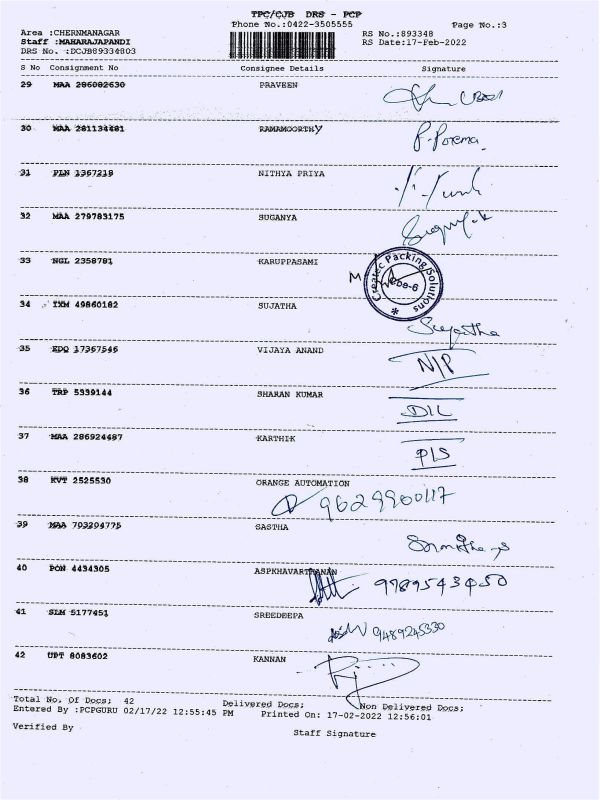 TPC/CJB DRS - PCP
Phone No.:0422-3505555 Page No.:3
Area :CHERNMANAGAR RS No.:893348
Staff :MAHARAJAPANDI RS Date:17-Feb-2022
DRS No. :DCJB89334803
S No Consignment No Consignee Details Signature
29 MAA 286082630 PRAVEEN
30 MAA 281134481 RAMAMOORTHY P. Porema
31 PLN 1367219 NITHYA PRIYA
32 MAA 279783175 SUGANYA
33 NGL 2358781 KARUPPASAMI M Createc Packing Solutions Cbe-6 *
34 TXM 49860182 SUJATHA Sujatha
35 EDQ 17367546 VIJAYA ANAND N/P
36 TRP 5339144 SHARAN KUMAR D/L
37 MAA 286924487 KARTHIK P/S
38 KVT 2525530 ORANGE AUTOMATION 9629900117
39 MAA 703204775 SASTHA
40 PON 4434305 ASPKHAVARTHANAN 9789543450
41 SLM 5177451 SREEDEEPA 9489245330
42 UPT 8083602 KANNAN
Total No. Of Docs; 42 Delivered Docs; Non Delivered Docs;
Entered By :PCPGURU 02/17/22 12:55:45 PM Printed On: 17-02-2022 12:56:01
Verified By Staff Signature